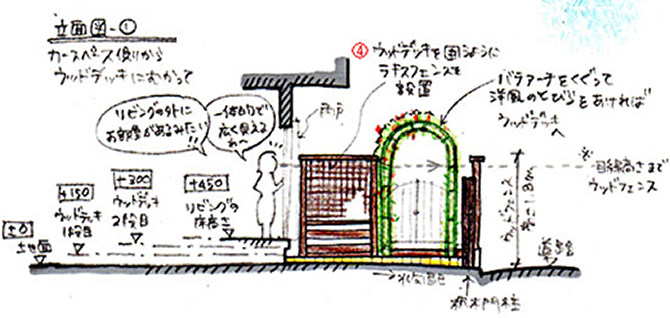 立面図-①
カースペース側から
ウッドデッキにむかって
④ ウッドデッキを囲うように
ラチスフェンスを
設置
バラアーチをくぐって
洋風のとびらをあければ
ウッドデッキ
へ
リビングの外に
お部屋があるみたい
一体的で
広く見える
わへ
雨戸
±0
土地面
+150
ウッドデッキ
1段目
+300
ウッドデッキ
2段目
+450
リビングの
床高さ
目線高さまで
ウッドフェンス
ウッドフェンス
高さ1.8m
道路
枕木門柱